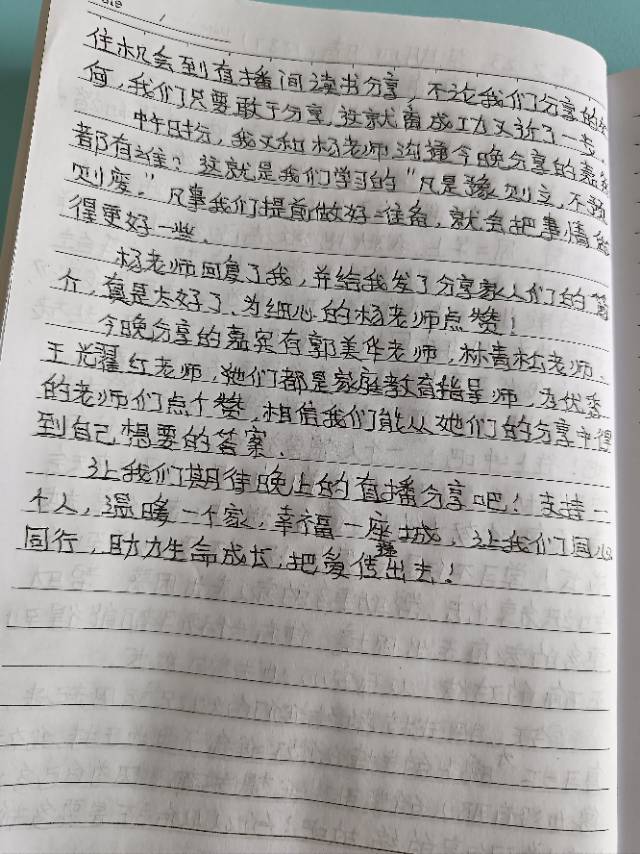 住机会到直播间读书分享，不论我们分享的如
何，我们只要敢于分享，这就离成功又近了一步。
中午时分，我又和杨老师沟通今晚分享的嘉宾
都有谁？这就是我们学习的“凡是豫则立，不预
则废。”凡事我们提前做好准备，就会把事情做
得更好一些。
杨老师回复了我，并给我发了分享家人们的简
介，真是太好了，为细心的杨老师点赞！
今晚分享的嘉宾有郭美华老师，林青松老师、
王光翟红老师，她们都是家庭教育指导师，为优秀
的老师们点个赞，相信我们能从她们的分享中得
到自己想要的答案。
让我们期待晚上的直播分享吧！支持一
个人，温暖一个家，幸福一座城，让我们同心
同行，助力生命成长，把爱传播出去！